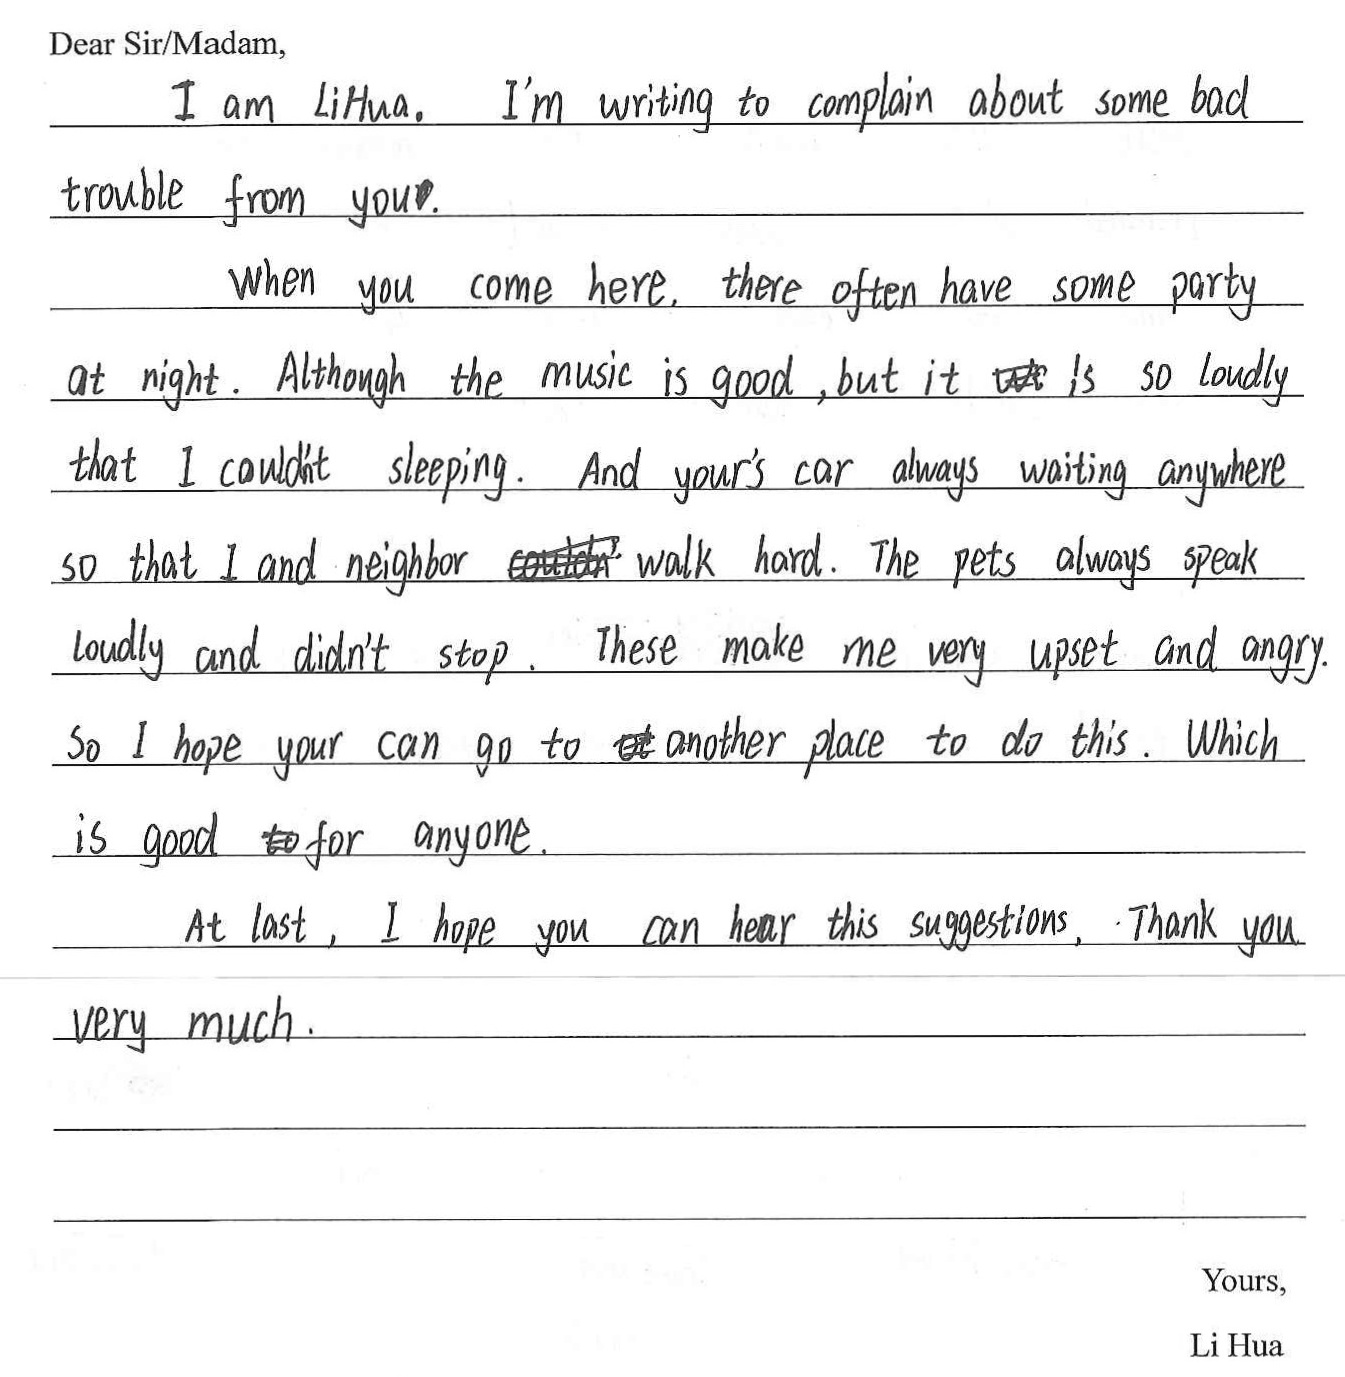 Dear Sir/Madam,
I am LiHua. I'm writing to complain about some bad
trouble from you.
When you come here, there often have some party
at night. Although the music is good, but it is so loudly
that I could'nt sleeping. And your's car always waiting anywhere
so that I and neighbor walk hard. The pets always speak
loudly and didn't stop. These make me very upset and angry.
So I hope your can go to another place to do this. Which
is good for anyone.
At last, I hope you can hear this suggestions. Thank you
very much.
Yours,
Li Hua